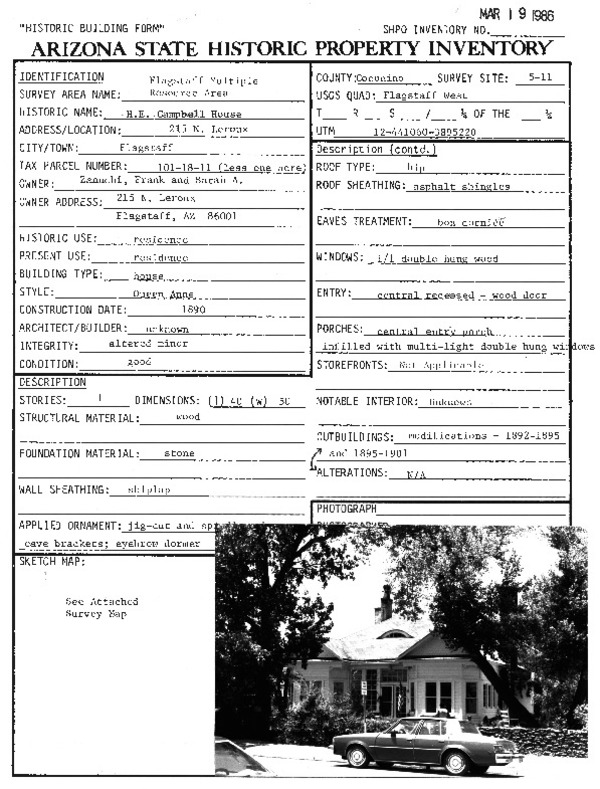 MAR 19 1986
"HISTORIC BUILDING FORM"
SHPO INVENTORY NO.
ARIZONA STATE HISTORIC PROPERTY INVENTORY
IDENTIFICATION
SURVEY AREA NAME: Flagstaff Multiple Resource Area
HISTORIC NAME: H.E. Campbell House
ADDRESS/LOCATION: 215 N. Leroux
CITY/TOWN: Flagstaff
TAX PARCEL NUMBER: 101-18-11 (less one acre)
OWNER: Frank and Sarah A.
OWNER ADDRESS: 215 N. Leroux
Flagstaff, AZ 86001
HISTORIC USE: residence
PRESENT USE: residence
BUILDING TYPE: house
STYLE: Queen Anne
CONSTRUCTION DATE: 1890
ARCHITECT/BUILDER: unknown
INTEGRITY: altered minor
CONDITION: good
DESCRIPTION
STORIES: 1 DIMENSIONS: (l) 40 (w) 50
STRUCTURAL MATERIAL: wood
FOUNDATION MATERIAL: stone
WALL SHEATHING: shiplap
APPLIED ORNAMENT: jig-cut and
eave brackets; eyebrow dormer
SKETCH MAP:
See Attached
Survey Map
COUNTY: Coconino SURVEY SITE: 5-11
USGS QUAD: Flagstaff West
T R S / ¼ OF THE ¼
UTM 12-441060-3895220
Description (contd.)
ROOF TYPE: hip
ROOF SHEATHING: asphalt shingles
EAVES TREATMENT: box cornice
WINDOWS: 1/1 double hung wood
ENTRY: central recessed - wood door
PORCHES: central entry porch
infilled with multi-light double hung windows
STOREFRONTS: Not Applicable
NOTABLE INTERIOR: Unknown
OUTBUILDINGS: modifications - 1892-1895
and 1895-1901
ALTERATIONS: N/A
PHOTOGRAPH